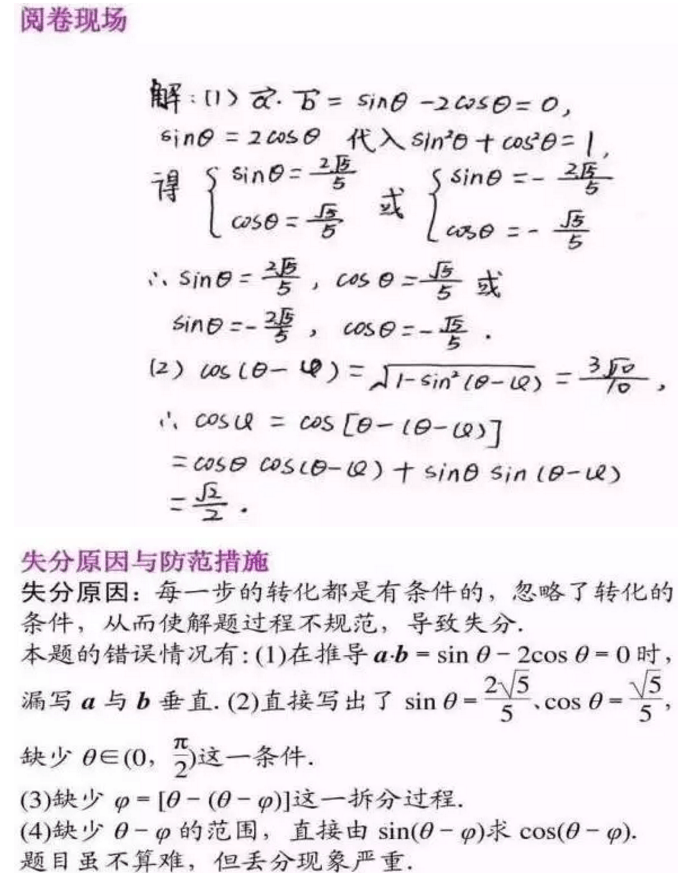 阅卷现场
解:(1) a⃗·b⃗ = sinθ-2cosθ=0,
sinθ=2cosθ 代入sin²θ+cos²θ=1,
得 { sinθ=2√5/5 cosθ=√5/5 或 { sinθ=-2√5/5 cosθ=-√5/5
∴sinθ=2√5/5, cosθ=√5/5 或
sinθ=-2√5/5, cosθ=-√5/5.
(2) cos(θ-φ)=√(1-sin²(θ-φ))=3√10/10,
∴ cosφ = cos[θ-(θ-φ)]
=cosθ cos(θ-φ)+sinθ sin(θ-φ)
=√2/2.
失分原因与防范措施
失分原因：每一步的转化都是有条件的，忽略了转化的
条件，从而使解题过程不规范，导致失分.
本题的错误情况有:(1)在推导a·b=sin θ-2cos θ=0时,
漏写 a 与 b 垂直.(2)直接写出了 sin θ=2√5/5、cos θ=√5/5,
缺少 θ∈(0, π/2)这一条件.
(3)缺少 φ=[θ-(θ-φ)]这一拆分过程.
(4)缺少 θ-φ 的范围，直接由 sin(θ-φ)求 cos(θ-φ).
题目虽不算难，但丢分现象严重.